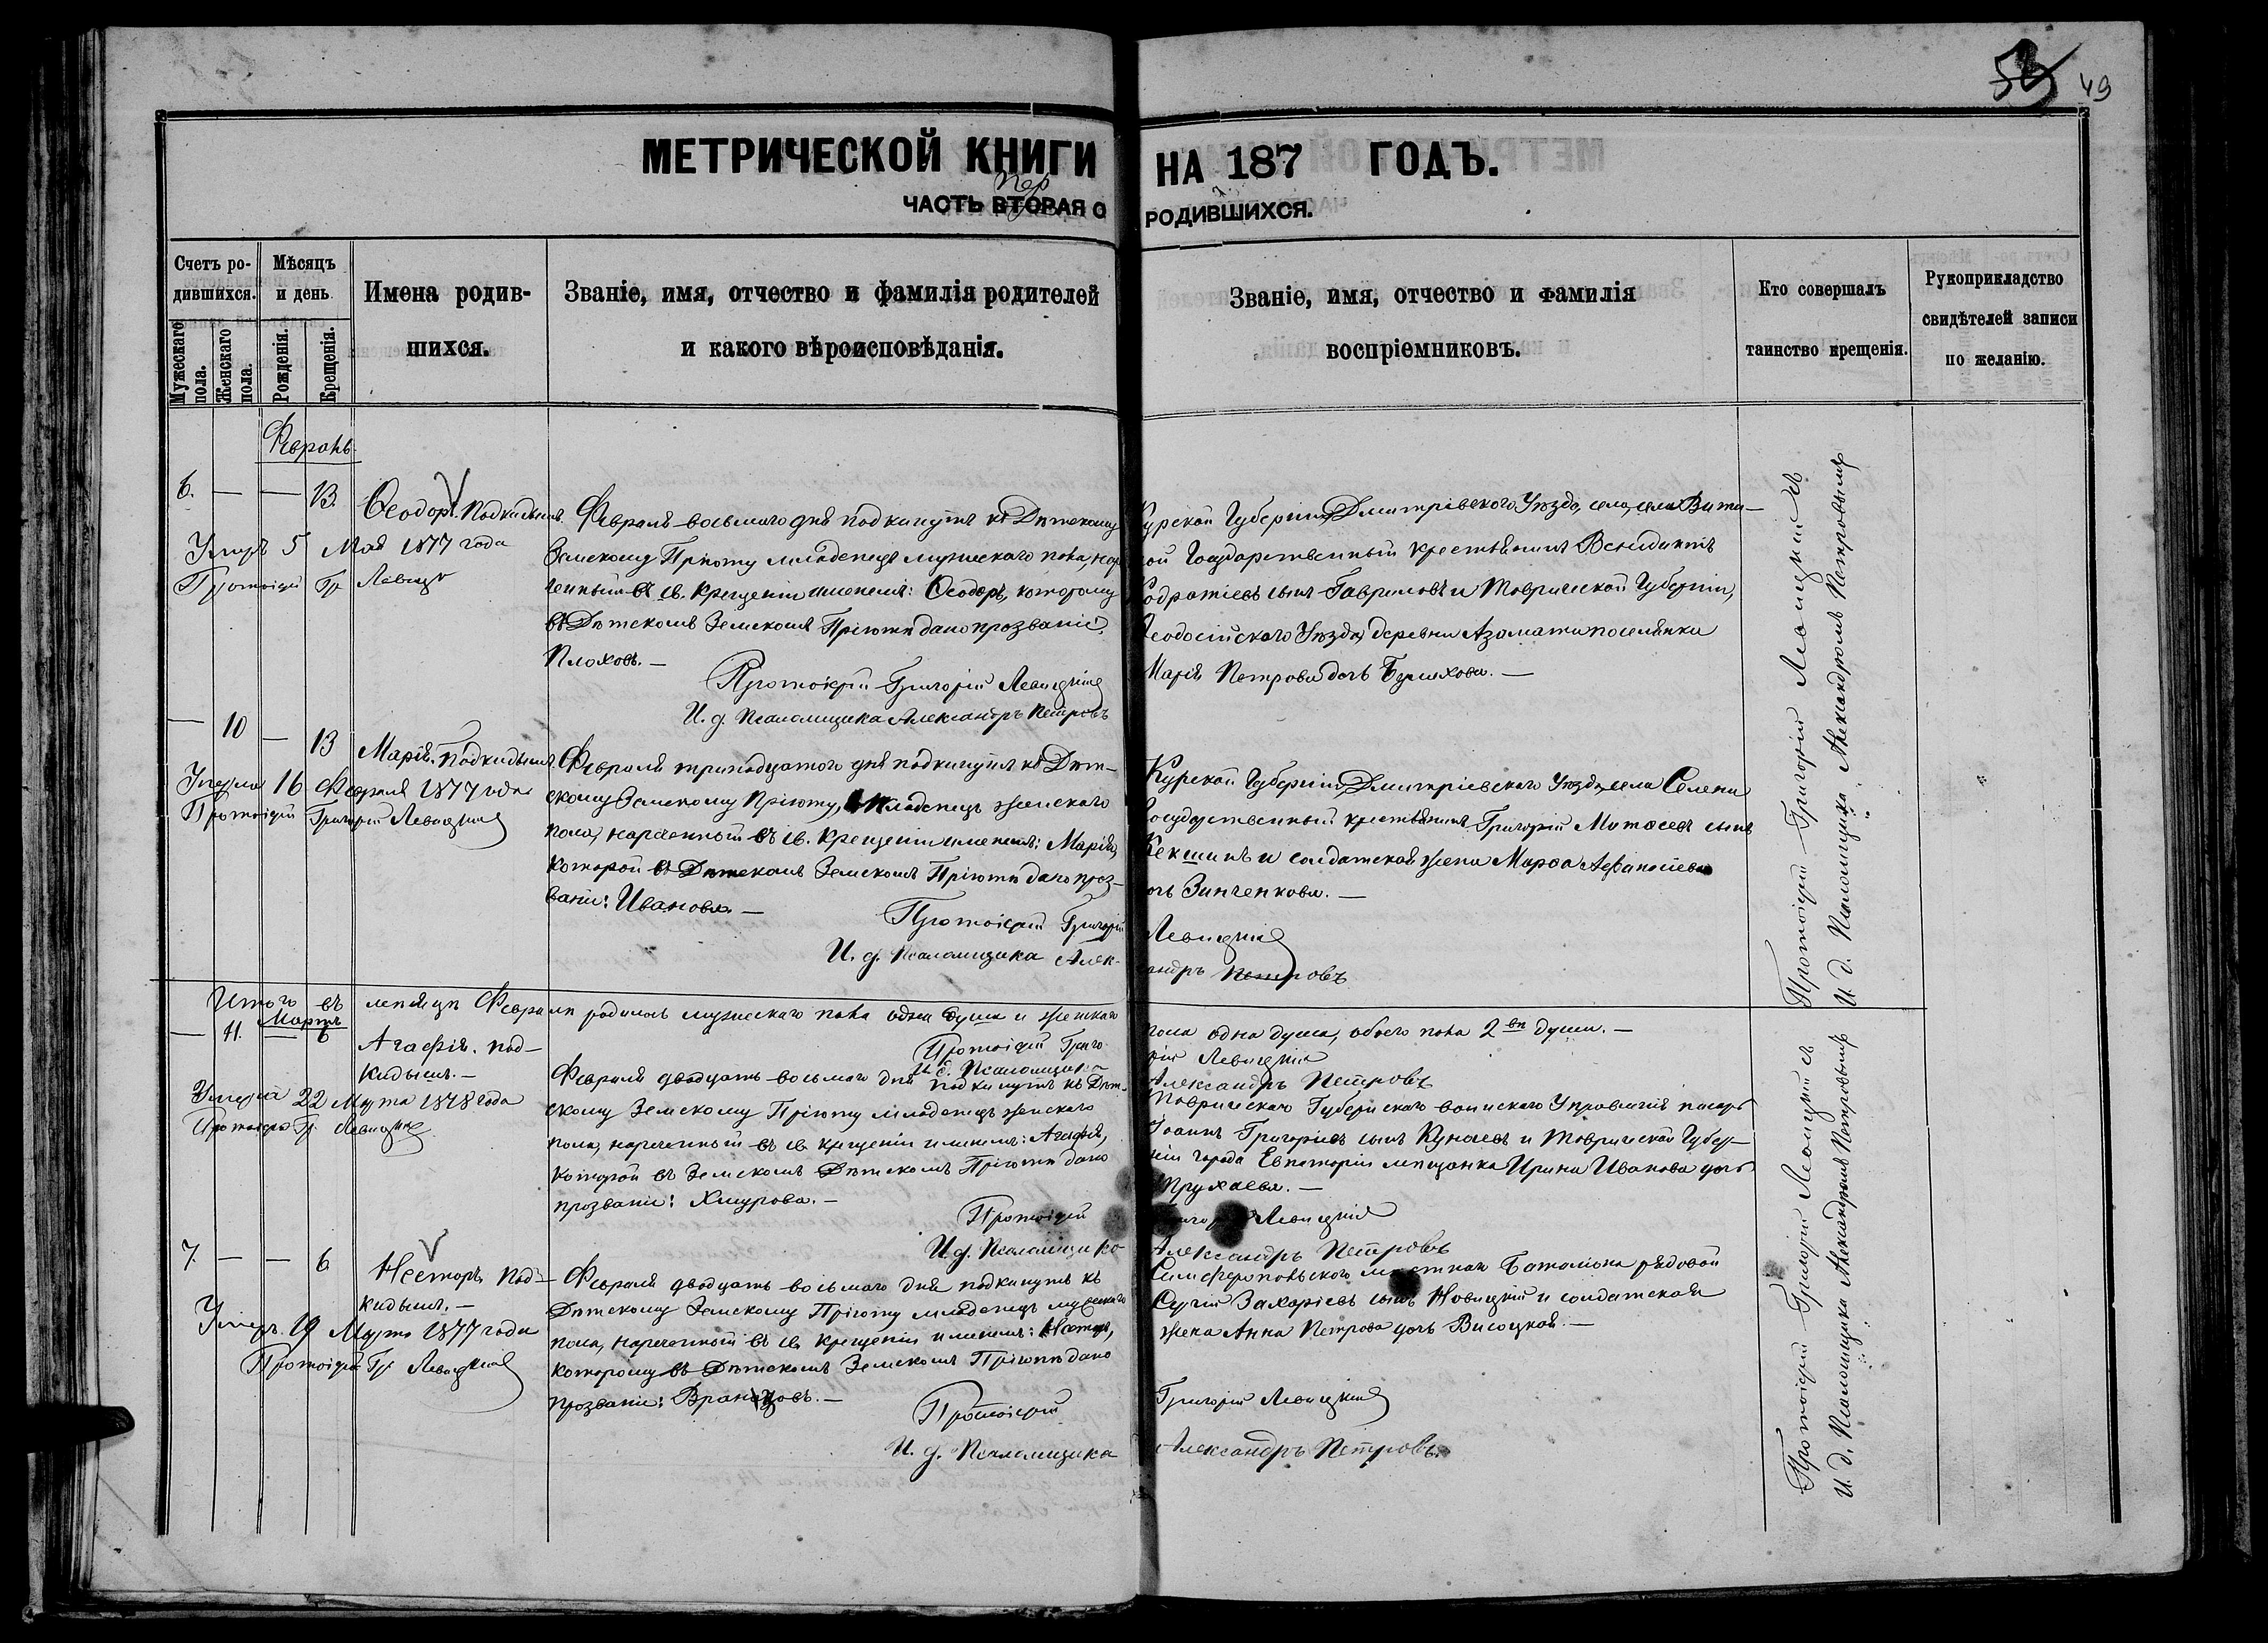 53 49
МЕТРИЧЕСКОЙ КНИГИ НА 187 ГОДЪ.
пер
ЧАСТЬ ВТОРАЯ О РОДИВШИХСЯ.
Счетъ ро-
дившихся.
Мужескаго пола.
Женскаго пола.
Мѣсяцъ
и день
Рожденія.
Крещенія.
Имена родив-
шихся.
Званіе, имя, отчество и фамилія родителей
и какого вѣроисповѣданія.
Званіе, имя, отчество и фамилія
воспріемниковъ.
Кто совершалъ
таинство крещенія.
Рукоприкладство
свидѣтелей записи
по желанію.
Февраль
6. — — 13.
Ѳеодоръ. Подкидышъ.
Умеръ 5 Мая 1877 года
Протоіерей Гр Левицк
Февраля восьмаго дня подкинутъ къ Дѣтскому
Земскому Пріюту младенецъ мужескаго пола, наре
ченный въ св. крещеніи именемъ: Ѳеодоръ, которому
въ Дѣтскомъ Земскомъ Пріютѣ дано прозваніе:
Плоховъ. —
Протоіерей Григорій Левицкій
И. д. Псаломщика Александръ Петровъ
Курской Губерніи, Дмитріевскаго Уѣзда, села
кой Государственный крестьянинъ Венидиктъ
сынъ Гавриловъ и Таврической Губерніи,
Ѳеодосійскаго Уѣзда, деревни Азаматъ поселянка
Марія Петрова дочь
— 10 — 13
Марія. Подкидышъ.
Умерла 16 Февраля 1877 года
Протоіерей Григорій Левицкій
Февраля тринадцатаго дня подкинутъ къ Дѣт-
скому Земскому Пріюту, младенецъ женскаго
пола, нареченный въ св. крещеніи именемъ: Марія,
которой въ Дѣтскомъ Земскомъ Пріютѣ дано проз-
ваніе: Иванова. —
Протоіерей Григорій Левицкій
И. д. Псаломщика Александръ Петровъ
Курской Губерніи, Дмитріевскаго Уѣзда, села Селени
Государственный крестьянинъ Григорій сынъ
и солдатская жена Марѳа Аѳанасіева
дочь Зинченкова. —
Протоіерей Григорій Левицкій съ
И. д. Псаломщика Александромъ Петровымъ
Итого въ мѣсяцѣ Февралѣ родилось мужескаго пола одна душа и женскаго пола одна душа, обоего пола 2 вѣ души. —
Протоіерей Григорій Левицкій
И. д. Псаломщика Александръ Петровъ
Мартъ
— 11. — 6
Агафія. Под-
кидышъ. —
Умерла 22 Марта 1878 года
Протоіерей Гр. Левицкій
Февраля двадцать восьмаго дня подкинутъ къ Дѣт-
скому Земскому Пріюту младенецъ женскаго
пола, нареченный въ св. крещеніи именемъ: Агафія,
которой въ Земскомъ Дѣтскомъ Пріютѣ дано
прозваніе: Хмурова. —
Протоіерей Григорій Левицкій
И. д. Псаломщика Александръ Петровъ
Таврическаго Губернскаго воинскаго Управленія писарь
Іоаннъ Григоріевъ сынъ Кунаевъ и Таврической Губер-
ніи города Евпаторіи мѣщанка Ирина Иванова дочь
Трухаева. —
7. — — 6
Несторъ. Под-
кидышъ. —
Умеръ 19 Марта 1877 года
Протоіерей Гр Левицкій
Февраля двадцать восьмаго дня подкинутъ къ
Дѣтскому Земскому Пріюту младенецъ мужескаго
пола, нареченный въ св. крещеніи именемъ: Несторъ,
которому въ Дѣтскомъ Земскомъ Пріютѣ дано
прозваніе:
Протоіерей Григорій Левицкій
И. д. Псаломщика Александръ Петровъ.
Симферопольскаго мѣстнаго Баталіона рядовой
Сергій Захаріевъ сынъ Новицкій и солдатская
жена Анна Петрова дочь Висоцкая. —
Протоіерей Григорій Левицкій съ
И. д. Псаломщика Александромъ Петровымъ